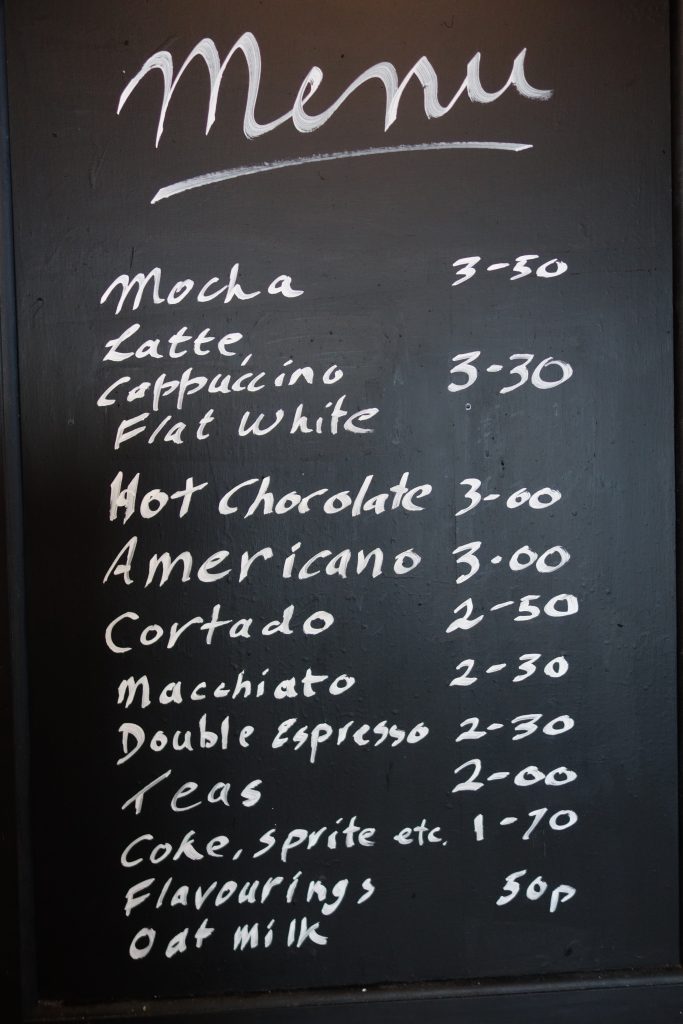 Menu
Mocha 3-50
Latte,
Cappuccino 3-30
Flat White
Hot Chocolate 3-00
Americano 3.00
Cortado 2-50
Macchiato 2-30
Double Espresso 2-30
Teas 2-00
Coke, sprite etc. 1-70
Flavourings 50p
Oat milk